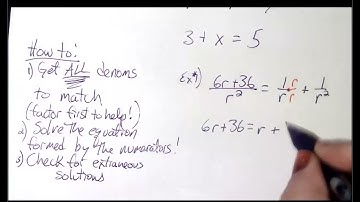 How to:
1) Get ALL denoms
to match
(factor first to help!)
2) Solve the equation
formed by the numerators!
3) Check for extraneous
solutions
3 + x = 5
Ex*) (6r+36)/r² = 1·r/r·r + 1/r²
6r+36 = r +